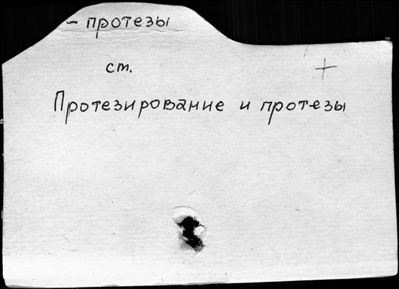 - протезы
ст. +
Протезирование и протезы